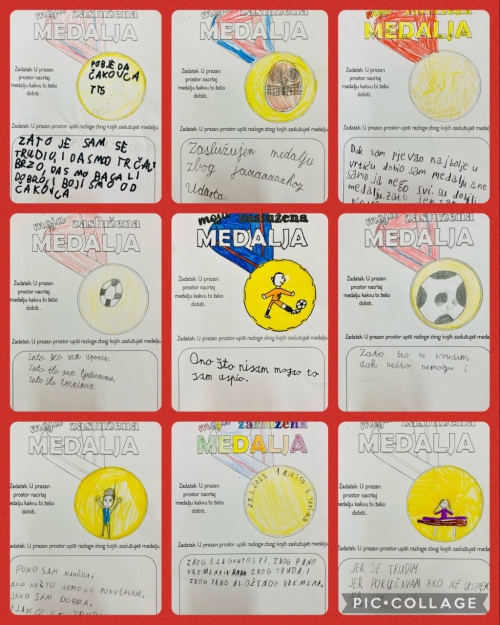 MEDALJA
Zadatak: U prazan
prostor nacrtaj
medalju kakvu bi želio
dobiti..
U prazan prostor upiši razloge zbog kojih zaslužuješ medalju.
POBJEDA
ČAKOVCA
ZATO JE SAM SE
TRUDIO, I DA SMO TRČALI
BRZO, DAS MO BACALI
DOBRO, I BOJI SMO OD
ČAKOVCA
MEDALJA
Zadatak: U prazan
prostor nacrtaj
medalju kakvu bi želio
dobiti..
U prazan prostor upiši razloge zbog kojih zaslužuješ medalju.
Zaslužujem medalju
zbog
udarca.
MEDALJA
Zadatak: U prazan
prostor nacrtaj
medalju kakvu bi želio
dobiti..
U prazan prostor upiši razloge zbog kojih zaslužuješ medalju.
Dok sam pjevao najbolje u
vrtiću dobio sam medalju ane
samo ja nego svi su dobili
medalju. zato
moja zaslužena
MEDALJA
Zadatak: U prazan
prostor nacrtaj
medalju kakvu bi želio
dobiti..
U prazan prostor upiši razloge zbog kojih zaslužuješ medalju.
Zato što sam uporan.
Zato što sam
Zato što treniram.
moja zaslužena
MEDALJA
Zadatak: U prazan
prostor nacrtaj
medalju kakvu bi želio
dobiti..
U prazan prostor upiši razloge zbog kojih zaslužuješ medalju.
Ono što nisam mogao to
sam uspio.
MEDALJA
Zadatak: U prazan
prostor nacrtaj
medalju kakvu bi želio
dobiti..
U prazan prostor upiši razloge zbog kojih zaslužuješ medalju.
Zato što se trudim
dok nešto ne mogu i
moja zaslužena
MEDALJA
Zadatak: U prazan
prostor nacrtaj
medalju kakvu bi želio
dobiti..
U prazan prostor upiši razloge zbog kojih zaslužuješ medalju.
PUNO SAM NAUČILA,
AKO NEŠTO NE MOGU POKUŠAVAM,
JAKO SAM DOBRA,
moja zaslužena
MEDALJA
Zadatak: U prazan
prostor nacrtaj
medalju kakvu bi želio
dobiti..
U prazan prostor upiši razloge zbog kojih zaslužuješ medalju.
1 MJESTO
ZBOG ELEGANTOSTI, ZBOG PUNO
VREMENA RADA ZBOG TRUDA I
ZBOG PUNO ULOŽENOG VREMENA.
moja zaslužena
MEDALJA
Zadatak: U prazan
prostor nacrtaj
medalju kakvu bi želio
dobiti..
U prazan prostor upiši razloge zbog kojih zaslužuješ medalju.
JER SE TRUDIM
JER POKUŠAVAM AKO NE USPIJEM
PIC•COLLAGE